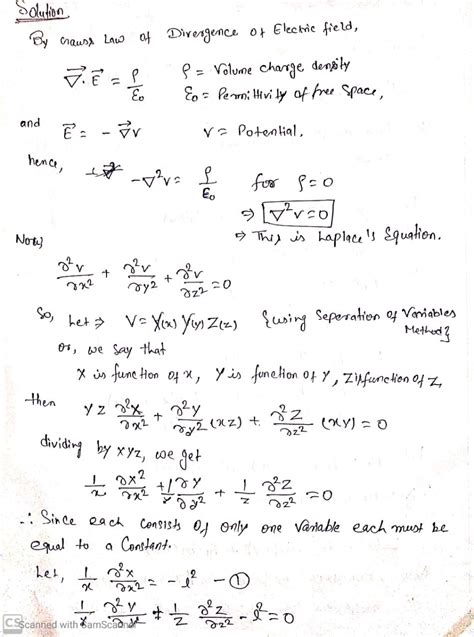 Solution
By Gauss Law of Divergence of Electric field,
∇⃗.E⃗ = ρ/ε₀   ρ = Volume charge density
ε₀ = Permittivity of free Space,
and E⃗ = -∇⃗v   v = Potential.
hence, -∇²v = ρ/ε₀   for ρ=0
⇒ ∇²v=0
⇒ This is Laplace's Equation.
Now,
∂²v/∂x² + ∂²v/∂y² + ∂²v/∂z² = 0
So, Let ⇒ V = X(x) Y(y) Z(z) {using Seperation of Variables
Method}
or, we say that
X is function of x, Y is function of Y, Z is function of Z,
then YZ ∂²X/∂x² + ∂²Y/∂y² (XZ) + ∂²Z/∂z² (XY) = 0
dividing by XYZ, we get
1/x ∂x²/∂x² + 1/Y ∂Y/∂y² + 1/Z ∂²Z/∂z² = 0
∴ Since each consists of only one Variable each must be
equal to a Constant.
Let, 1/x ∂²x/∂x² = -l² - ①
1/Y ∂²Y/∂y² + 1/Z ∂²Z/∂z² - l² = 0
CS Scanned with CamScanner